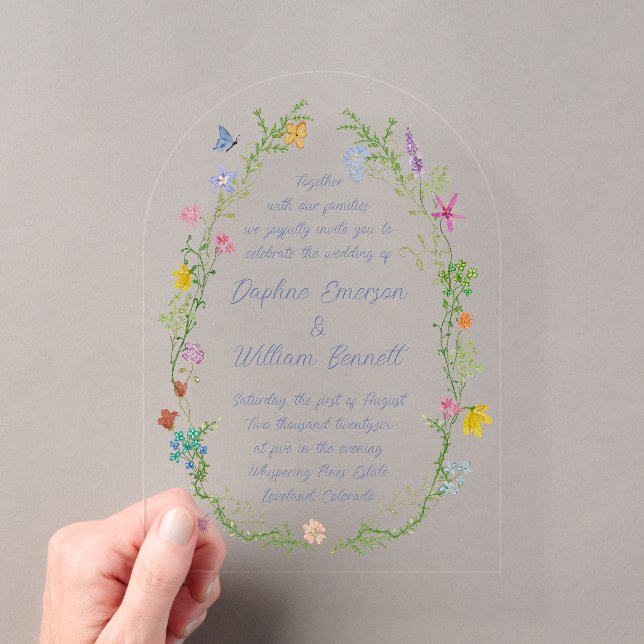 Together
with our families
we joyfully invite you to
celebrate the wedding of
Daphne Emerson
&
William Bennett
Saturday, the first of August
Two thousand twentysix
at five in the evening
Whispering Pines Estate
Loveland, Colorado